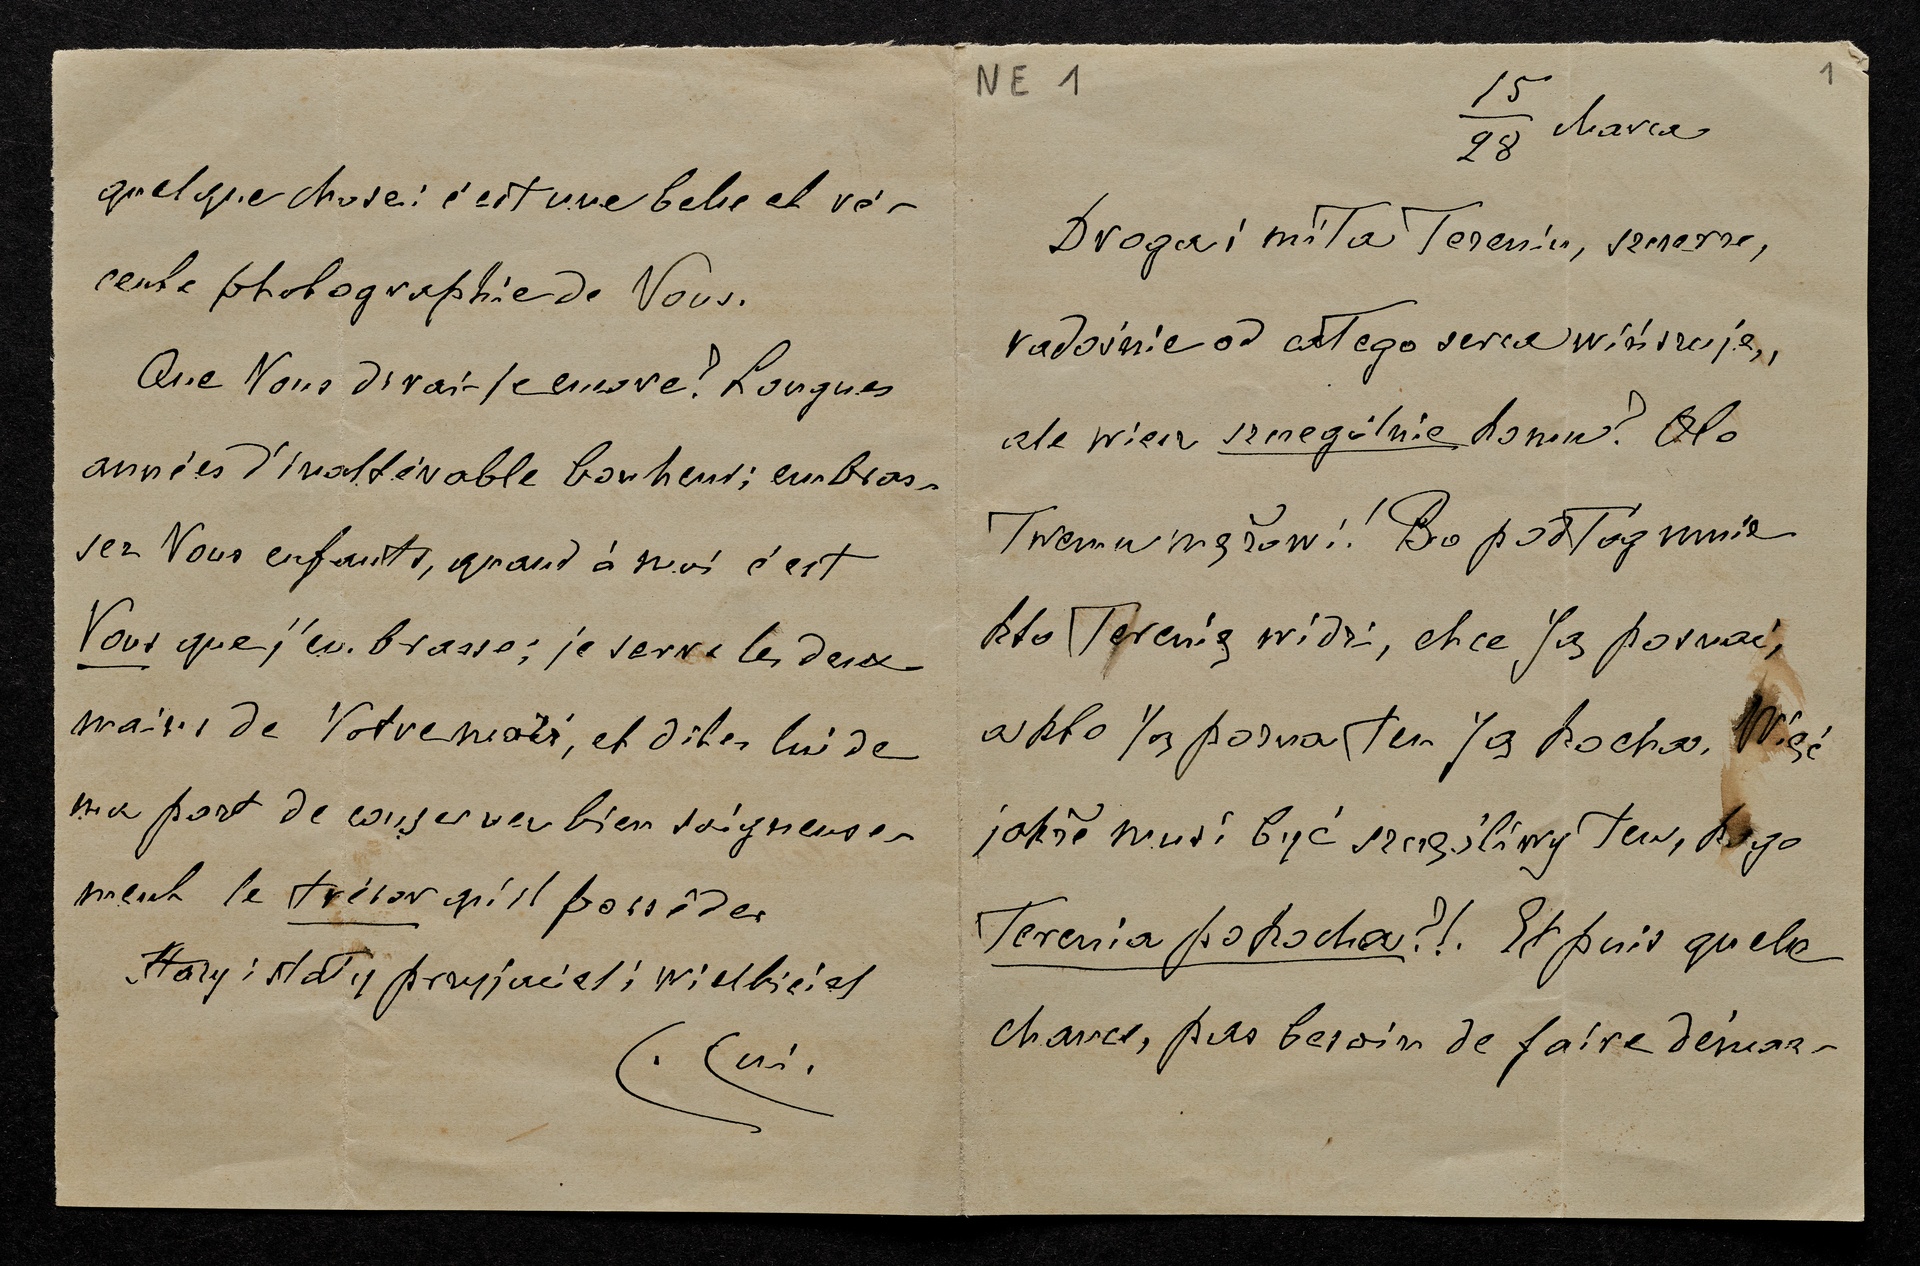 NE 1
1
15/28 Marca
Droga i miła Tereniu, szczerze,
radośnie od całego serca winszuję,
ale wiesz szczególnie komu? Oto
Twemu mężowi! Bo podług mnie
kto Terenię widzi, chce Ją poznać,
a kto Ją pozna ten Ją kocha. Więc
jakże musi być szczęśliwy ten, kogo
Terenia pokocha?!. Et puis quelle
chance, pas besoin de faire démar-
quelque chose: c'est une belle et ré-
cente photographie de Vous.
Que Vous dirai-je encore? Longues
années d'inaltérable bonheur; embras-
sez Vous enfants, quand à moi c'est
Vous que j'embrasse; je serre les deux
mains de Votre mari, et dites lui de
ma part de conserver bien soigneuse-
ment le trésor qu'il possède.
Stary i stały przyjaciel i wielbiciel
C. Cui.